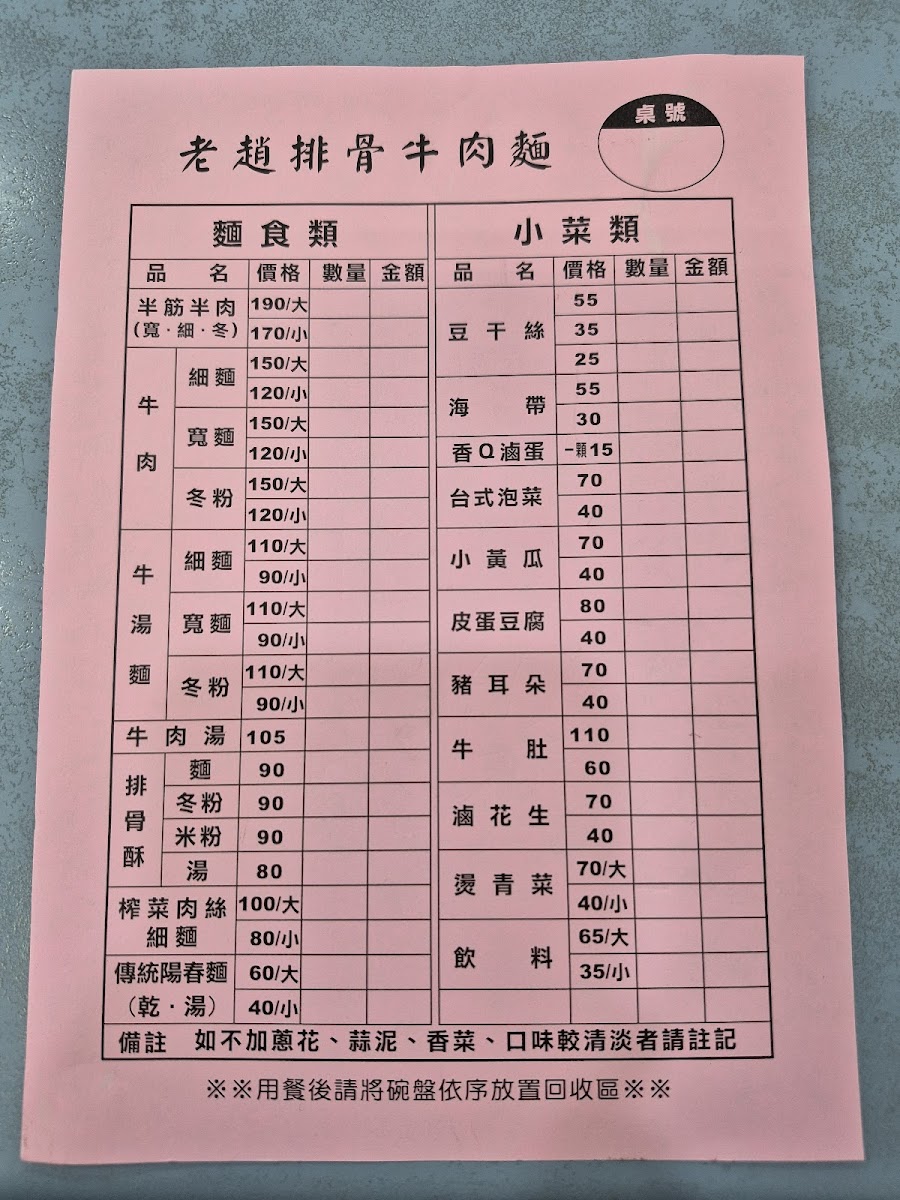 桌號
老趙排骨牛肉麵
麵食類
品名 價格 數量 金額
半筋半肉 190/大
(寬·細·冬) 170/小
牛肉 細麵 150/大
120/小
寬麵 150/大
120/小
冬粉 150/大
120/小
牛湯麵 細麵 110/大
90/小
寬麵 110/大
90/小
冬粉 110/大
90/小
牛肉湯 105
排骨酥 麵 90
冬粉 90
米粉 90
湯 80
榨菜肉絲 100/大
細麵 80/小
傳統陽春麵 60/大
(乾·湯) 40/小
小菜類
品名 價格 數量 金額
豆干絲 55
35
25
海帶 55
30
香Q滷蛋 一顆15
台式泡菜 70
40
小黃瓜 70
40
皮蛋豆腐 80
40
豬耳朵 70
40
牛肚 110
60
滷花生 70
40
燙青菜 70/大
40/小
飲料 65/大
35/小
備註 如不加蔥花、蒜泥、香菜、口味較清淡者請註記
※※用餐後請將碗盤依序放置回收區※※